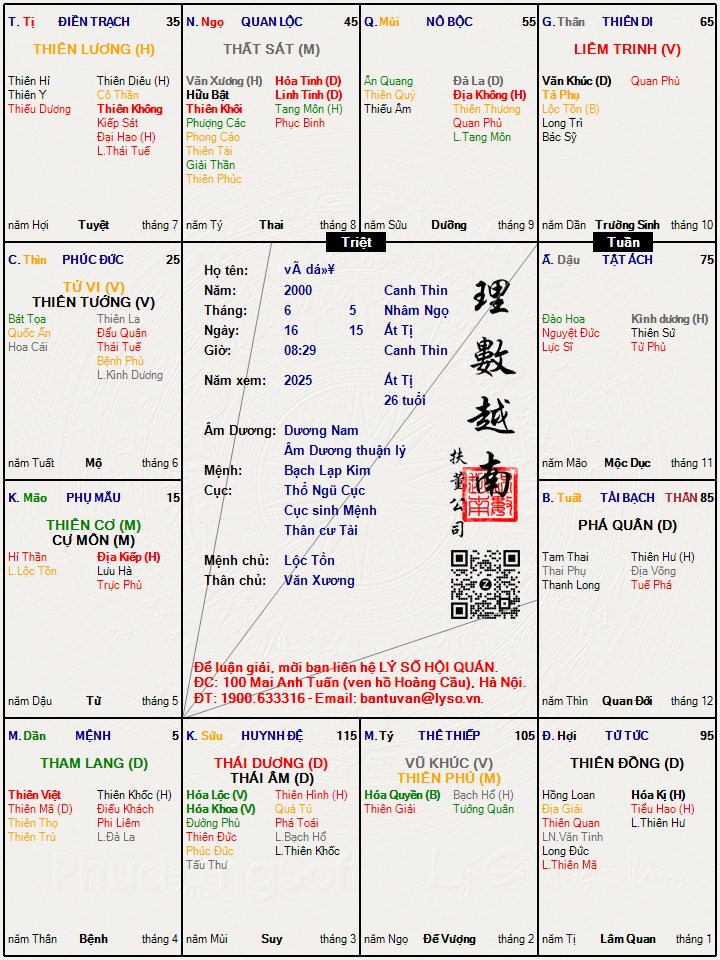 T. Tị ĐIỀN TRẠCH 35
THIÊN LƯƠNG (H)
Thiên Hỉ Thiên Diêu (H)
Thiên Y Cô Thần
Thiếu Dương Thiên Không
Kiếp Sát
Đại Hao (H)
L.Thái Tuế
năm Hợi Tuyệt tháng 7
N. Ngọ QUAN LỘC 45
THẤT SÁT (M)
Văn Xương (H) Hỏa Tinh (D)
Hữu Bật Linh Tinh (D)
Thiên Khôi Tang Môn (H)
Phượng Các Phục Binh
Phong Cáo
Thiên Tài
Giải Thần
Thiên Phúc
năm Tý Thai tháng 8
Q. Mùi NÔ BỘC 55
Ân Quang Đà La (D)
Thiên Quý Địa Không (H)
Thiếu Âm Thiên Thương
Quan Phủ
L.Tang Môn
năm Sửu Dưỡng tháng 9
G. Thân THIÊN DI 65
LIÊM TRINH (V)
Văn Khúc (D) Quan Phù
Tả Phụ
Lộc Tồn (B)
Long Trì
Bác Sỹ
năm Dần Trường Sinh tháng 10
Triệt
Tuần
C. Thìn PHÚC ĐỨC 25
TỬ VI (V)
THIÊN TƯỚNG (V)
Bát Tọa Thiên La
Quốc Ấn Đẩu Quân
Hoa Cái Thái Tuế
Bệnh Phù
L.Kình Dương
năm Tuất Mộ tháng 6
Họ tên: vÃ dá»¥
Năm: 2000 Canh Thìn
Tháng: 6 5 Nhâm Ngọ
Ngày: 16 15 Ất Tị
Giờ: 08:29 Canh Thìn
Năm xem: 2025 Ất Tị
26 tuổi
Âm Dương: Dương Nam
Âm Dương thuận lý
Mệnh: Bạch Lạp Kim
Cục: Thổ Ngũ Cục
Cục sinh Mệnh
Thân cư Tài
Mệnh chủ: Lộc Tồn
Thân chủ: Văn Xương
理數越南
扶董公司
Để luận giải, mời bạn liên hệ LÝ SỐ HỘI QUÁN.
ĐC: 100 Mai Anh Tuấn (ven hồ Hoàng Cầu), Hà Nội.
ĐT: 1900.633316 - Email: bantuvan@lyso.vn.
Ấ. Dậu TẬT ÁCH 75
Đào Hoa Kình dương (H)
Nguyệt Đức Thiên Sứ
Lực Sĩ Tử Phù
năm Mão Mộc Dục tháng 11
K. Mão PHỤ MẪU 15
THIÊN CƠ (M)
CỰ MÔN (M)
Hỉ Thần Địa Kiếp (H)
L.Lộc Tồn Lưu Hà
Trực Phù
năm Dậu Tử tháng 5
B. Tuất TÀI BẠCH THÂN 85
PHÁ QUÂN (D)
Tam Thai Thiên Hư (H)
Thai Phụ Địa Võng
Thanh Long Tuế Phá
năm Thìn Quan Đới tháng 12
M. Dần MỆNH 5
THAM LANG (D)
Thiên Việt Thiên Khốc (H)
Thiên Mã (D) Điếu Khách
Thiên Thọ Phi Liêm
Thiên Trù L.Đà La
năm Thân Bệnh tháng 4
K. Sửu HUYNH ĐỆ 115
THÁI DƯƠNG (D)
THÁI ÂM (D)
Hóa Lộc (V) Thiên Hình (H)
Hóa Khoa (V) Quả Tú
Đường Phù Phá Toái
Thiên Đức L.Bạch Hổ
Phúc Đức L.Thiên Khốc
Tấu Thư
năm Mùi Suy tháng 3
M. Tý THÊ THIẾP 105
VŨ KHÚC (V)
THIÊN PHỦ (M)
Hóa Quyền (B) Bạch Hổ (H)
Thiên Giải Tướng Quân
năm Ngọ Đế Vượng tháng 2
Đ. Hợi TỬ TỨC 95
THIÊN ĐỒNG (D)
Hồng Loan Hóa Kị (H)
Địa Giải Tiểu Hao (H)
Thiên Quan L.Thiên Hư
LN.Văn Tinh
Long Đức
L.Thiên Mã
năm Tị Lâm Quan tháng 1